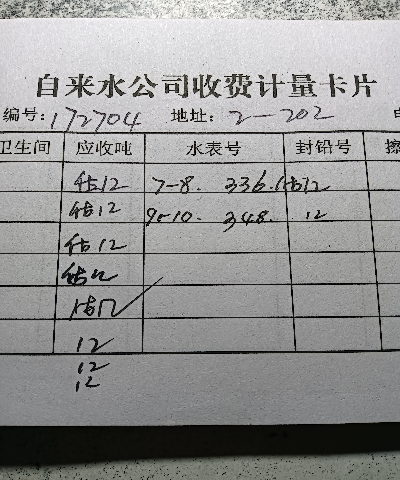 自来水公司收费计量卡片
编号: 172704 地址: 2-202
卫生间 应收吨 水表号 封铅号
估12 7-8. 336. 估12
估12 9-10. 348. 12
估12
估12
估12
12
12
12